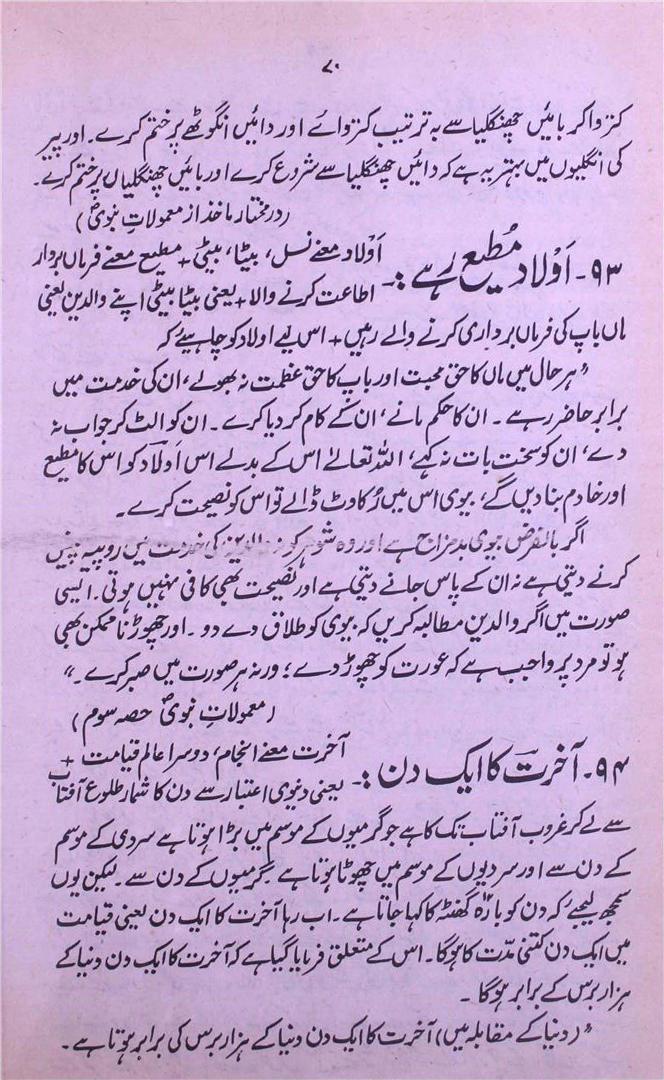 ۷۰
کتروا کر بائیں چھنگلیا سے بہ ترتیب کتروائے اور دائیں انگوٹھے پر ختم کرے۔ اور پیر
کی انگلیوں میں بہتر یہ ہے کہ دائیں چھنگلیا سے شروع کرے اور بائیں چھنگلیاں پر ختم کرے۔
(درمختار ماخذ از معمولاتِ نبویؐ)
۹۳۔ اَوْلاد مُطیع رہے :۔
اَوْلاد معنے نسل، بیٹا، بیٹی + مطیع معنے فرماں بردار
اطاعت کرنے والا + یعنی بیٹا بیٹی اپنے والدین یعنی
ماں باپ کی فرماں برداری کرنے والے رہیں + اس لیے اولاد کو چاہیئے کہ
”ہر حال میں ماں کا حق محبت اور باپ کا حق عظمت نہ بھولے، ان کی خدمت میں
برابر حاضر رہے۔ ان کا حکم مانے، ان کے کام کر دیا کرے۔ ان کو الٹ کر جواب نہ
دے، ان کو سخت بات نہ کہے، اللہ تعالےٰ اس کے بدلے اس اَولاد کو اس کا مطیع
اور خادم بنا دیں گے، بیوی اس میں رُکاوٹ ڈالے تو اس کو نصیحت کرے۔
اگر بالفرض بیوی بدمزاج ہے اور وہ شوہر کو نہ والدین کی خدمت میں روپیہ پیش
کرنے دیتی ہے نہ ان کے پاس جانے دیتی ہے اور نصیحت بھی کافی نہیں ہوتی۔ ایسی
صورت میں اگر والدین مطالبہ کریں کہ بیوی کو طلاق دے دو۔ اور چھوڑنا ممکن بھی
ہو تو مرد پر واجب ہے کہ عورت کو چھوڑ دے؛ ورنہ ہر صورت میں صبر کرے۔“
(معمولاتِ نبویؐ حصہ سوم)
۹۴۔ آخرت کا ایک دن :۔
آخرت معنے انجام، دوسرا عالم قیامت +
یعنی دنیوی اعتبار سے دن کا شمار طلوع آفتاب
سے لے کر غروب آفتاب تک کا ہے جو گرمیوں کے موسم میں بڑا ہوتا ہے سردی کے موسم
کے دن سے اور سردیوں کے موسم میں چھوٹا ہوتا ہے گرمیوں کے دن سے۔ لیکن یوں
سمجھ لیجئے کہ دن کو بارہ گھنٹہ کا کہا جاتا ہے۔ اب رہا آخرت کا ایک دن یعنی قیامت
میں ایک دن کتنی مدّت کا ہوگا۔ اس کے متعلق فرمایا گیا ہے کہ آخرت کا ایک دن دنیا کے
ہزار برس کے برابر ہوگا۔
”(دنیا کے مقابلہ میں) آخرت کا ایک دن دنیا کے ہزار برس کی برابر ہوتا ہے۔